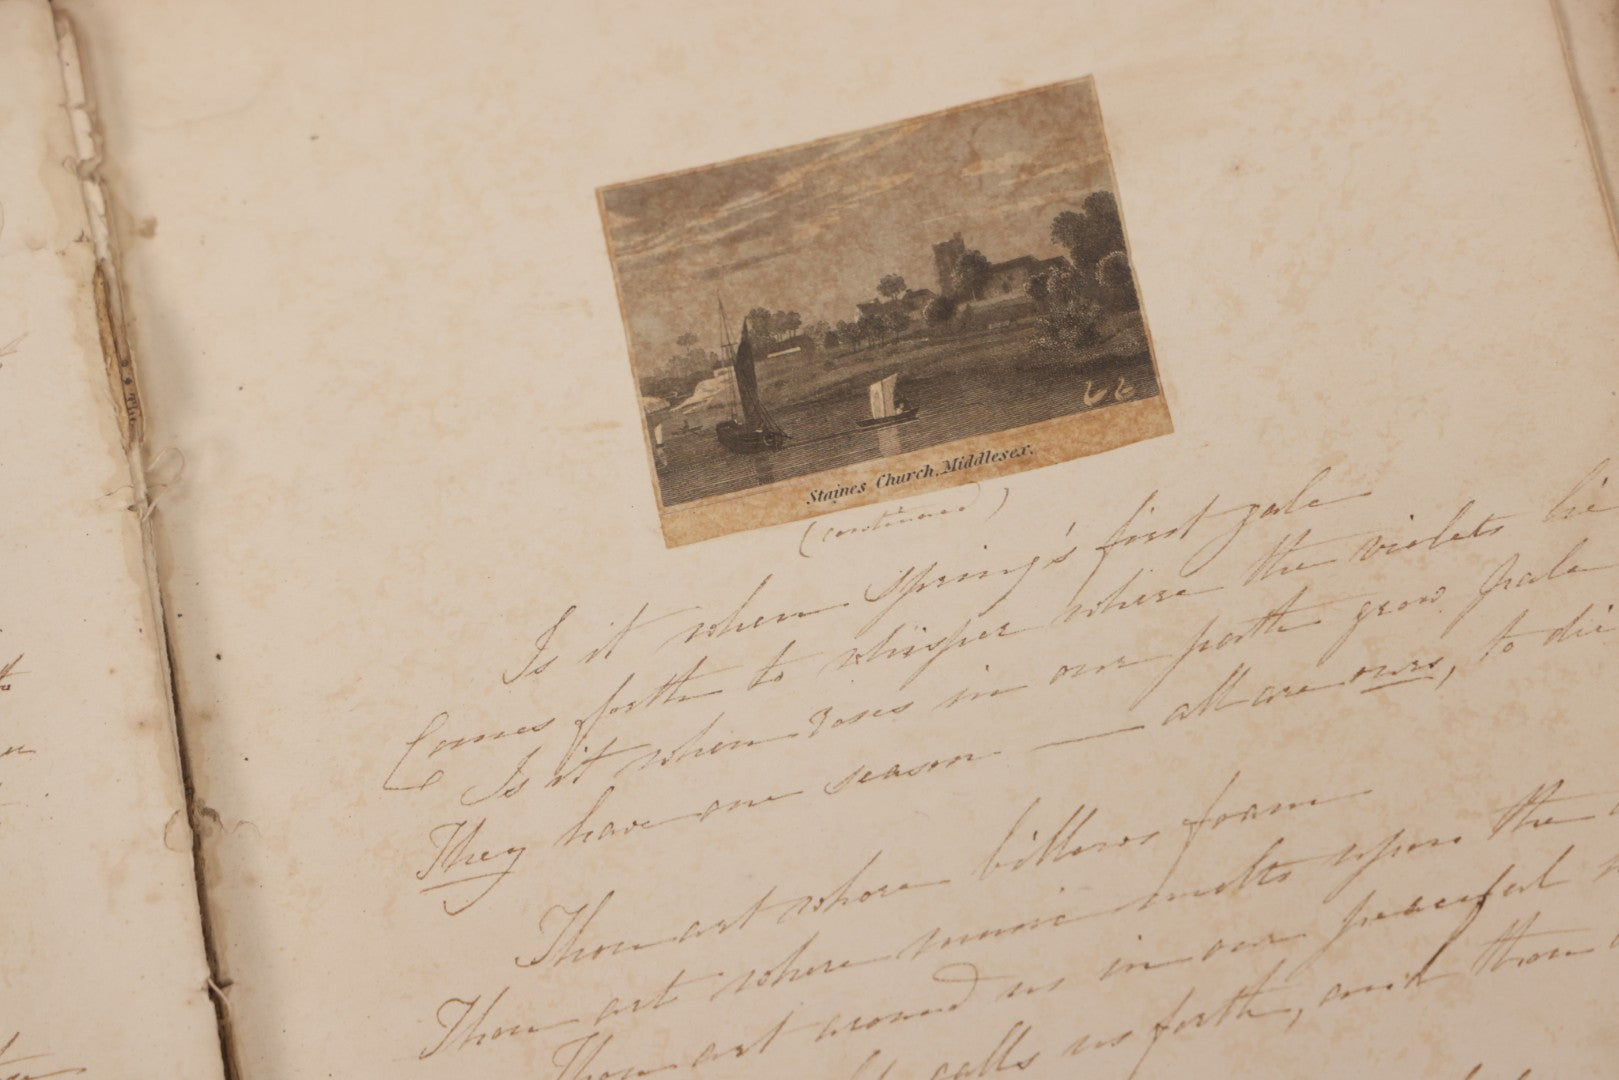 Staines Church, Middlesex.
(continued)
Is it when spring's first gale
Comes forth to whisper where the violets lie
Is it when roses in our path grow pale
They have one season — all are ours, to die
Thou art where billows foam
Thou art where music melts upon the
Thou art around us in our peaceful
calls us forth, and thou